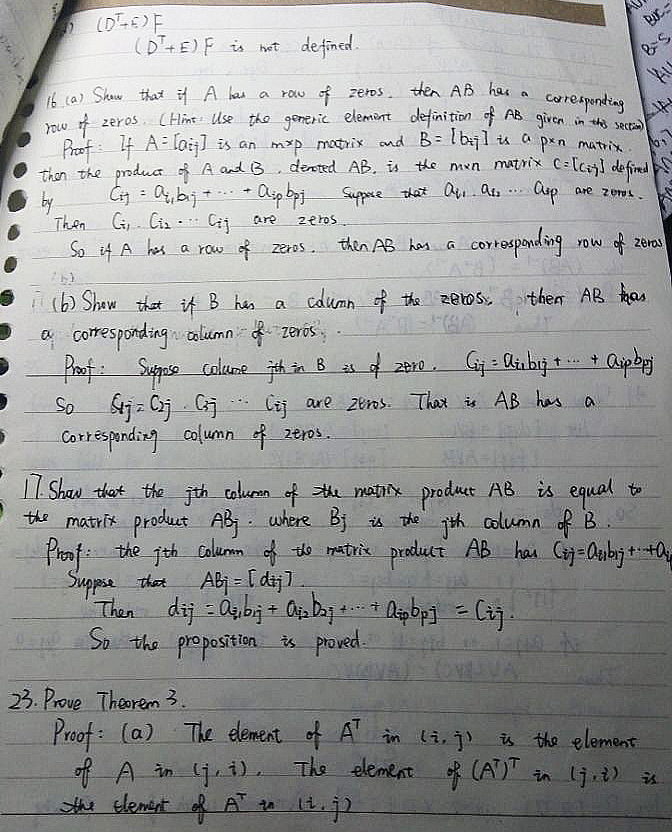 (Dᵀ+E)F
(Dᵀ+E)F is not defined.
16.(a) Show that if A has a row of zeros. then AB has a corresponding
row of zeros. (Hint: Use the generic element definition of AB given in this section)
Proof: If A=[aij] is an m×p matrix and B=[bij] is a p×n matrix.
then the product of A and B, denoted AB, is the m×n matrix C=[Cij] defined
by Cij = ai1b1j + ··· + aipbpj Suppose that ai1. ai2 ··· aip are zeros.
Then Ci1. Ci2 ··· Cij are zeros.
So if A has a row of zeros. then AB has a corresponding row of zeros
(b) Show that if B has a column of the zeros, then AB has
a corresponding column of zeros.
Proof: Suppose colume jth in B is of zero. Cij = ai1b1j + ··· + aipbpj
So C1j = C2j . C3j ··· Cij are zeros. That is AB has a
corresponding column of zeros.
17. Show that the jth column of the matrix product AB is equal to
the matrix product ABj. where Bj is the jth column of B.
Proof: the jth column of the matrix product AB has Cij=ai1b1j+···+ai
Suppose that ABj = [dij].
Then dij = ai1b1j + ai2b2j + ··· + aipbpj = Cij.
So the proposition is proved.
23. Prove Theorem 3.
Proof: (a) The element of Aᵀ in (i,j) is the element
of A in (j,i). The element of (Aᵀ)ᵀ in (j,i) is
the element of Aᵀ in (i,j)